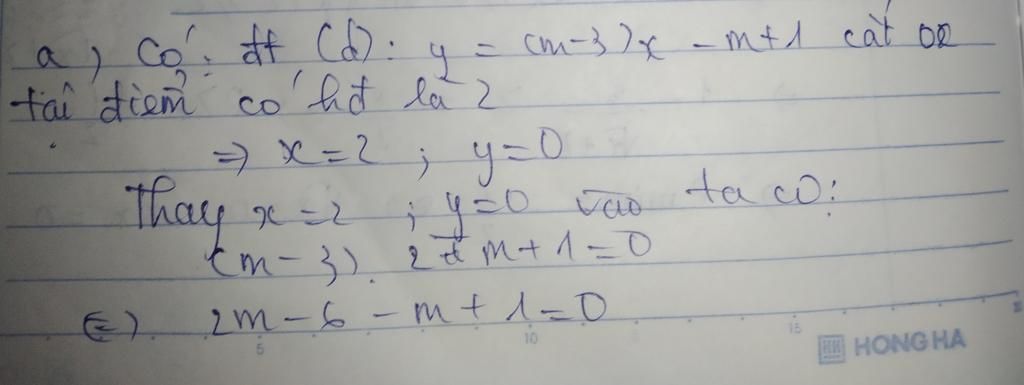 a) Có: đt (d): y = (m-3)x - m+1 cắt ox
tại điểm có hđ là 2
=> x=2 ; y=0
Thay x=2 ; y=0 vào ta có:
(m-3). 2 - m+1=0
(=) 2m-6-m+1=0
5 10 15
HONG HA